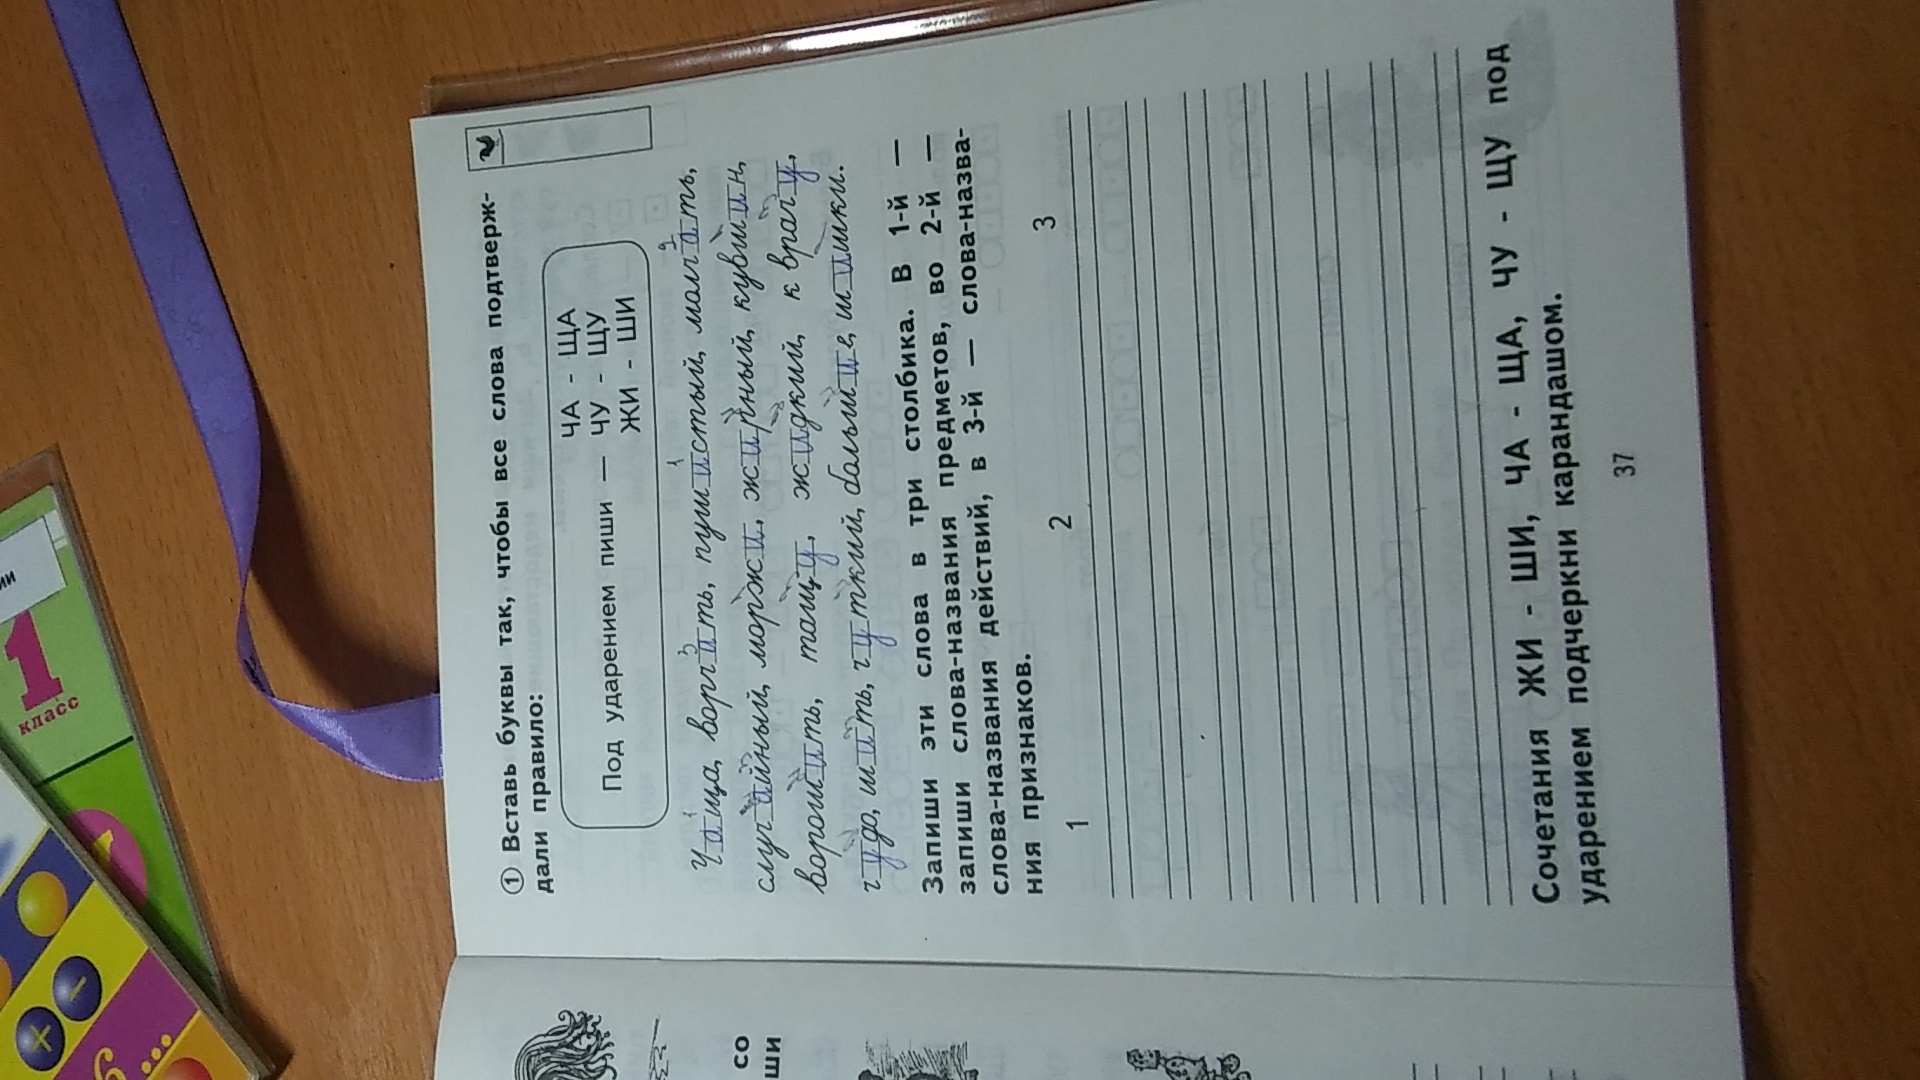 ① Вставь буквы так, чтобы все слова подтверж-
дали правило:
Под ударением пиши —
ЧА - ЩА
ЧУ - ЩУ
ЖИ - ШИ
Чаща, ворчать, пушистый, молчать,
случайный, моржи, жирный, кувшин,
ворошить, тащу, жидкий, к врачу,
чудо, шить, чуткий, большие, шишки.
Запиши эти слова в три столбика. В 1-й —
запиши слова-названия предметов, во 2-й —
слова-названия действий, в 3-й — слова-назва-
ния признаков.
1 2 3
Сочетания ЖИ - ШИ, ЧА - ЩА, ЧУ - ЩУ под
ударением подчеркни карандашом.
37
1
класс
ии
со
ши